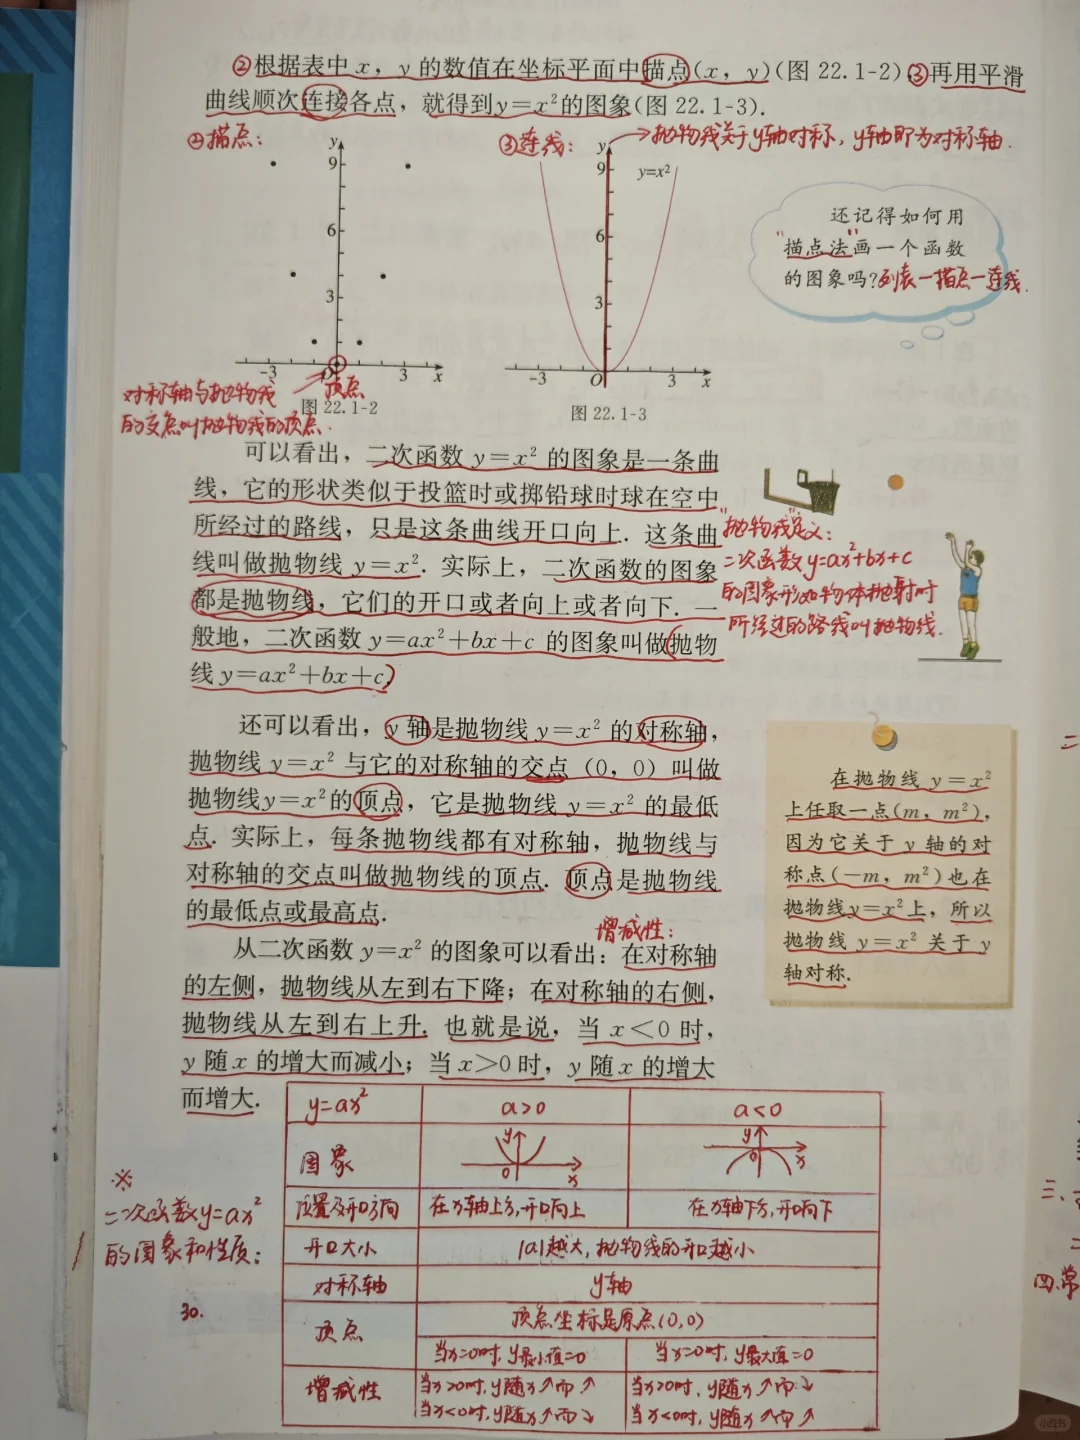 ②根据表中 x，y 的数值在坐标平面中描点(x，y)(图 22.1-2) ③再用平滑
曲线顺次连接各点，就得到y＝x²的图象(图 22.1-3).
②描点：
③连线：
→抛物线关于y轴对称，y轴即为对称轴.
y
9
6
3
-3
O
3
x
y
9
y=x²
6
3
-3
O
3
x
顶点
对称轴与抛物线
的交点叫抛物线的顶点.
图 22.1-2
图 22.1-3
还记得如何用
"描点法"画一个函数
的图象吗?列表一描点一连线.
可以看出，二次函数 y＝x² 的图象是一条曲
线，它的形状类似于投篮时或掷铅球时球在空中
所经过的路线，只是这条曲线开口向上. 这条曲
线叫做抛物线 y＝x². 实际上，二次函数的图象
都是抛物线，它们的开口或者向上或者向下. 一
般地，二次函数 y＝ax²＋bx＋c 的图象叫做抛物
线 y＝ax²＋bx＋c.
"抛物线"定义：
二次函数y=ax²+bx+c
的图象形如物体抛射时
所经过的路线叫抛物线.
还可以看出，y 轴是抛物线 y＝x² 的对称轴，
抛物线 y＝x² 与它的对称轴的交点（0，0）叫做
抛物线y＝x²的顶点，它是抛物线 y＝x² 的最低
点. 实际上，每条抛物线都有对称轴，抛物线与
对称轴的交点叫做抛物线的顶点. 顶点是抛物线
的最低点或最高点.
在抛物线 y＝x²
上任取一点(m，m²)，
因为它关于 y 轴的对
称点(－m，m²)也在
抛物线y＝x²上，所以
抛物线 y＝x² 关于 y
轴对称.
增减性：
从二次函数 y＝x² 的图象可以看出：在对称轴
的左侧，抛物线从左到右下降；在对称轴的右侧，
抛物线从左到右上升. 也就是说，当 x＜0 时，
y 随 x 的增大而减小；当 x＞0 时，y 随 x 的增大
而增大.
※
二次函数y=ax²
的图象和性质：
y=ax² a>0 a<0
图象
y
0
x
y
0
x
位置及开口方向 在x轴上方,开口向上 在x轴下方,开口向下
开口大小 |a|越大,抛物线的开口越小
对称轴 y轴
顶点 顶点坐标是原点(0,0)
当x=0时,y最小值=0 当x=0时,y最大值=0
增减性 当x>0时,y随x↗而↗ 当x>0时,y随x↗而↘
当x<0时,y随x↗而↘ 当x<0时,y随x↗而↗
30.
三、
四.常
小红书